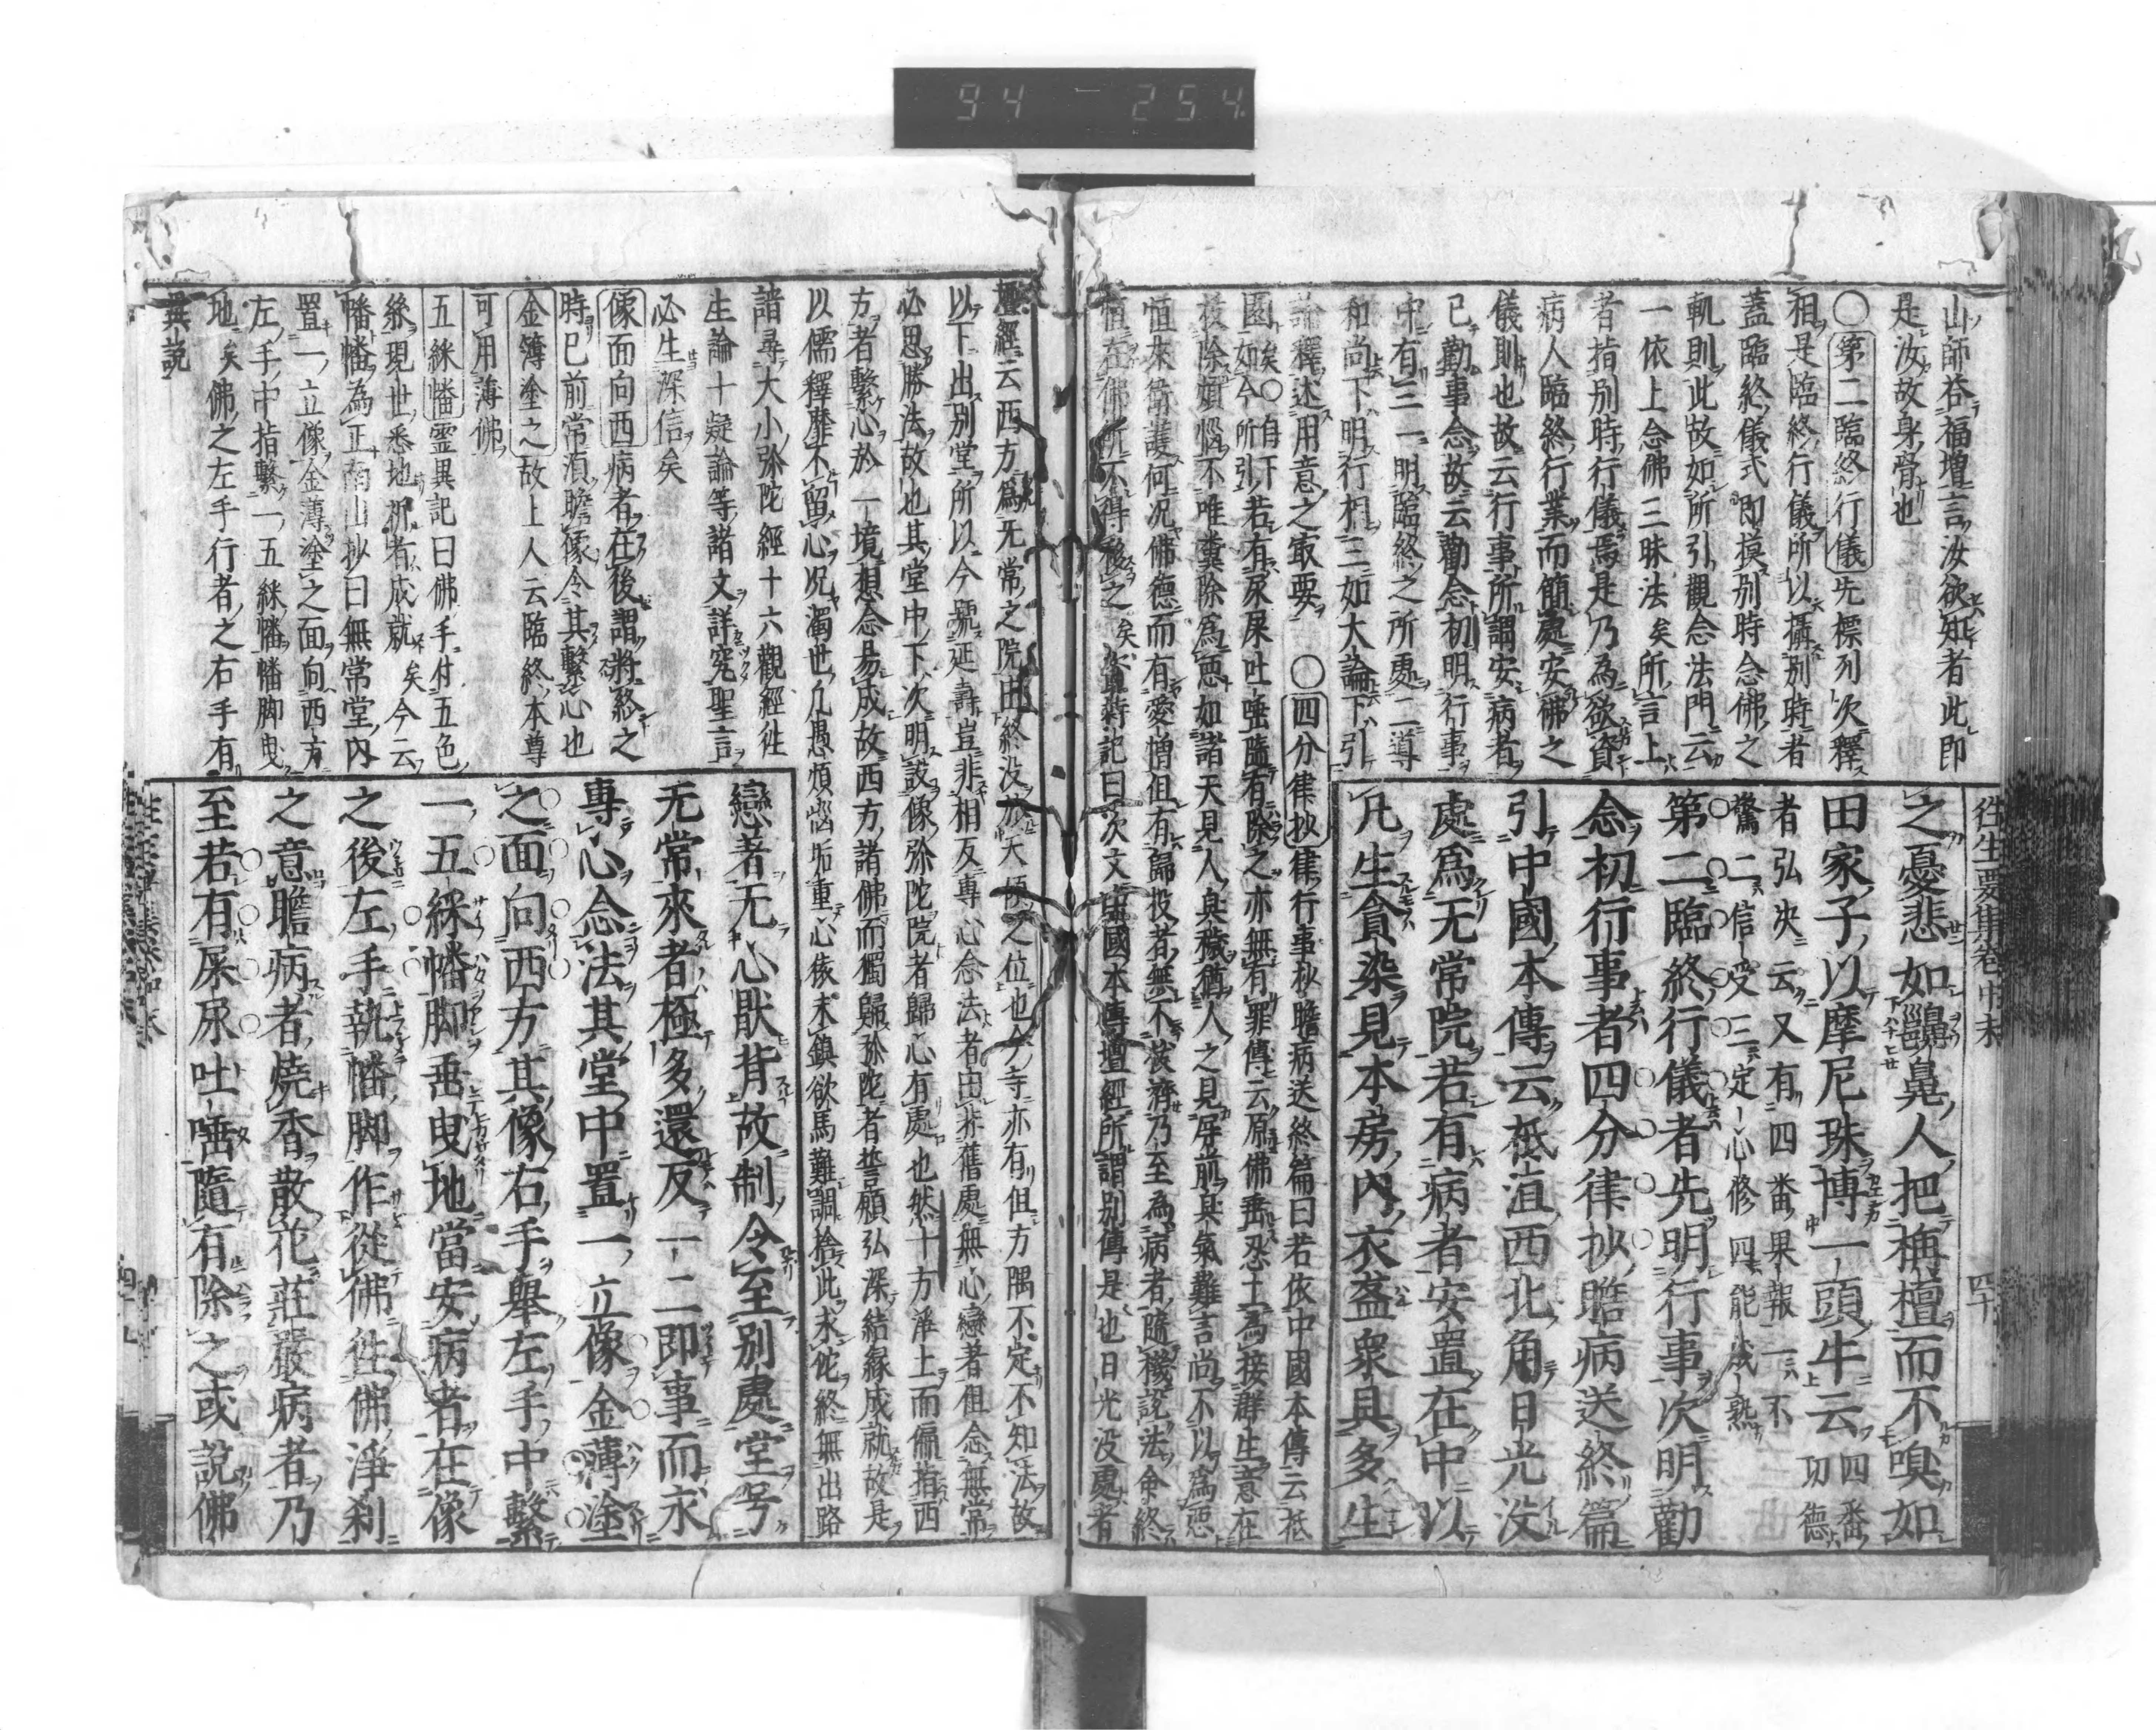 94 254
山師答福増言汝欲知者此即
是汝故身骨也
○第二臨終行儀先標列次釋
相是臨終行儀所以攝別時者
蓋臨終儀式即摸別時念佛之
軌則此故如所引觀念法門云
一依上念佛三昧法矣所言上
者指別時行儀焉是乃為欲資
病人臨終行業而簡處安佛之
儀則也故云行事所謂安病者
已勸事念故云勸念初明行事
中有三一明臨終之所處二導
和尚下明行相三如大論下引
論釋述用意之最要 ○四分律抄律行事抄瞻病送終篇曰若依中國本傳云祇
園如今所引若有尿屎吐唾隨有除之亦無有罪傳云原佛垂忍土為接群生意在
拔除煩惱不唯糞除為惡如諸天見人臭穢猶人之見屏前臭氣難言尚不以為惡
恒來衛護何況佛德而有愛憎但有歸投者無不拔濟乃至為病者隨機説法命終
之憂悲如齆鼻人把栴檀而不嗅如
田家子以摩尼珠博一頭牛云四番功德
者弘決云又有四番果報一不
驚二信受三定心修四能成熟
第二臨終行儀者先明行事次明勸
念初行事者四分律抄瞻病送終篇
引中國本傳云祇洹西北角日光没
處為无常院若有病者安置在中以
凡生貪染見本房内衣盔衆具多生
往生要集卷中末
四十
壇經云西方為无常之院由終没故大極之位也今寺亦有但方隅不定不知法故
以下出別堂所以今號延壽豈非相反專心念法者由非舊處無心戀著但念無常
必思勝法故也其堂中下次明設像弥陀院者歸心有處也然十方淨土而偏指西
方者繫心於一境想念易成故西方諸佛而獨歸弥陀者誓願弘深結緣成就故是
以儒釋靡不留心況濁世凡愚煩惱垢重心猿未鎮欲馬難調捨此求佗終無出路
諸尋大小弥陀經十六觀經往
生論十疑論等諸文詳究聖言
必生深信矣
像面向西病者在後謂將終之
時已前常湏瞻像令其繫心也
金簿塗之故上人云臨終本尊
可用薄佛
五綵幡霊異記曰佛手付五色
絲現世悉地祈者成就矣今云
幡幡為正南山抄曰無常堂内
置一立像金薄塗之面向西方
左手中指繫一五綵幡幡脚曳
地矣佛之左手行者之右手有
異説
戀著无心厭背故制令至別處堂号
无常來者極多還反一二即事而求
專心念法其堂中置一立像金薄塗
之面向西方其像右手舉左手中繫
一五綵幡脚垂曳地當安病者在像
之後左手執幡脚作從佛往佛淨刹
之意瞻病者燒香散花莊嚴病者乃
至若有屎尿吐唾隨有除之或説佛